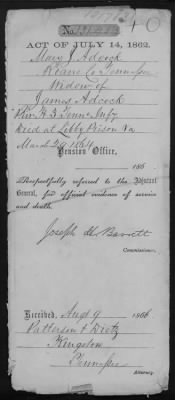 No. 131,212
ACT OF JULY 14, 1862.
Mary J. Adcock
Roane Co Tennessee
Widow of
James Adcock
Priv. H. 3 Tenn. Infy
Died at Libby Prison Va
March 29 1864
Pension Office,
186
Respectfully referred to the Adjutant
General, for official evidence of service
and death.
Joseph H. Barrett
Commissioner.
Received, Augt 9 1866
Patterson & Dietz
Kingston
Tennessee
Attorney.